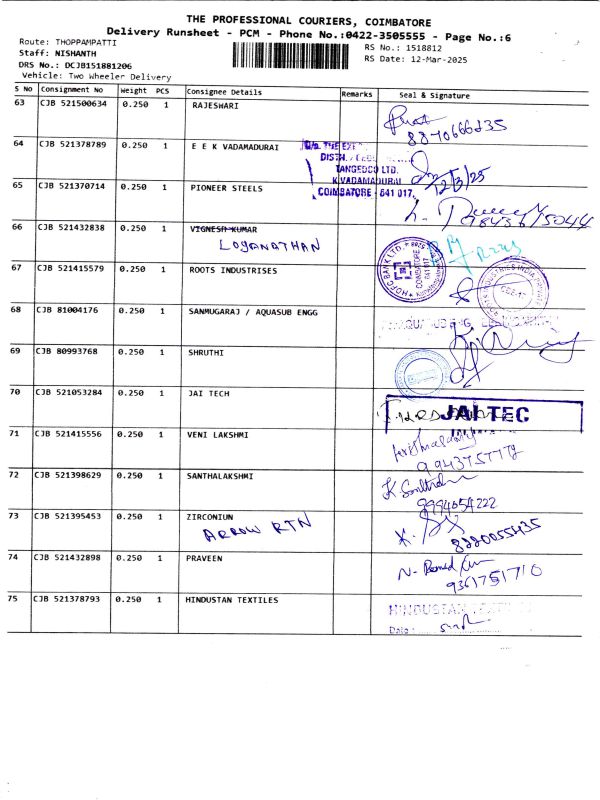 THE PROFESSIONAL COURIERS, COIMBATORE
Delivery Runsheet - PCM - Phone No.:0422-3505555 - Page No.:6
Route: THOPPAMPATTI
RS No.: 1518812
Staff: NISHANTH
RS Date: 12-Mar-2025
DRS No.: DCJB151881206
Vehicle: Two Wheeler Delivery
S No Consignment No Weight PCS Consignee Details Remarks Seal & Signature
63 CJB 521500634 0.250 1 RAJESHARI
8870666235
64 CJB 521378789 0.250 1 E E K VADAMADURAI
TANGEDCO LTD.
K.VADAMADURAI
COIMBATORE - 641 017.
12/3/25
65 CJB 521370714 0.250 1 PIONEER STEELS
66 CJB 521432838 0.250 1 VIGNESH KUMAR
LOGANATHAN
HDFC BANK LTD.
COIMBATORE
641 017
67 CJB 521415579 0.250 1 ROOTS INDUSTRISES
68 CJB 81004176 0.250 1 SANMUGARAJ / AQUASUB ENGG
69 CJB 80993768 0.250 1 SHRUTHI
70 CJB 521053284 0.250 1 JAI TECH
JAI TEC
71 CJB 521415556 0.250 1 VENI LAKSHMI
72 CJB 521398629 0.250 1 SANTHALAKSHMI
9994054222
73 CJB 521395453 0.250 1 ZIRCONIUN
ARROW RTN
8220055435
74 CJB 521432898 0.250 1 PRAVEEN
9361751710
75 CJB 521378793 0.250 1 HINDUSTAN TEXTILES
HINDUSTAN
Date